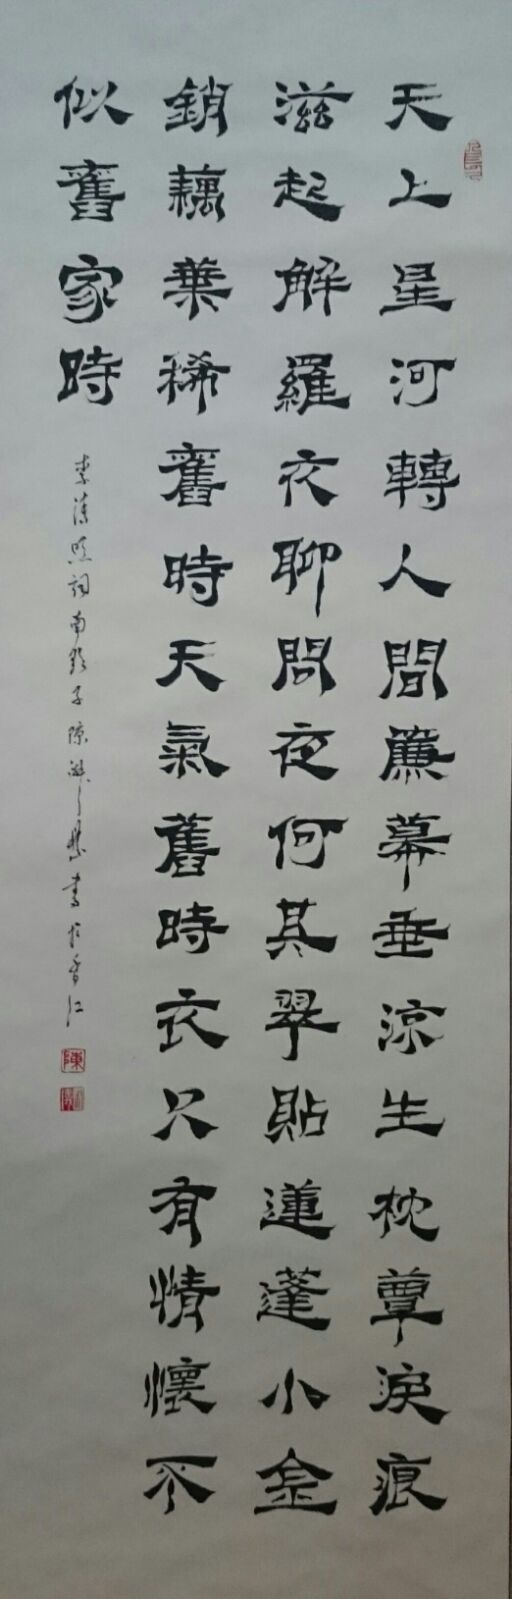 天上星河轉人間簾幕垂涼生枕覃淚痕
滋起解羅衣聊問夜何其翠貼蓮蓬小金
銷藕葉稀舊時天氣舊時衣只有情懷不
似舊家時
李清照詞南歌子陳淑 書於香江
陳